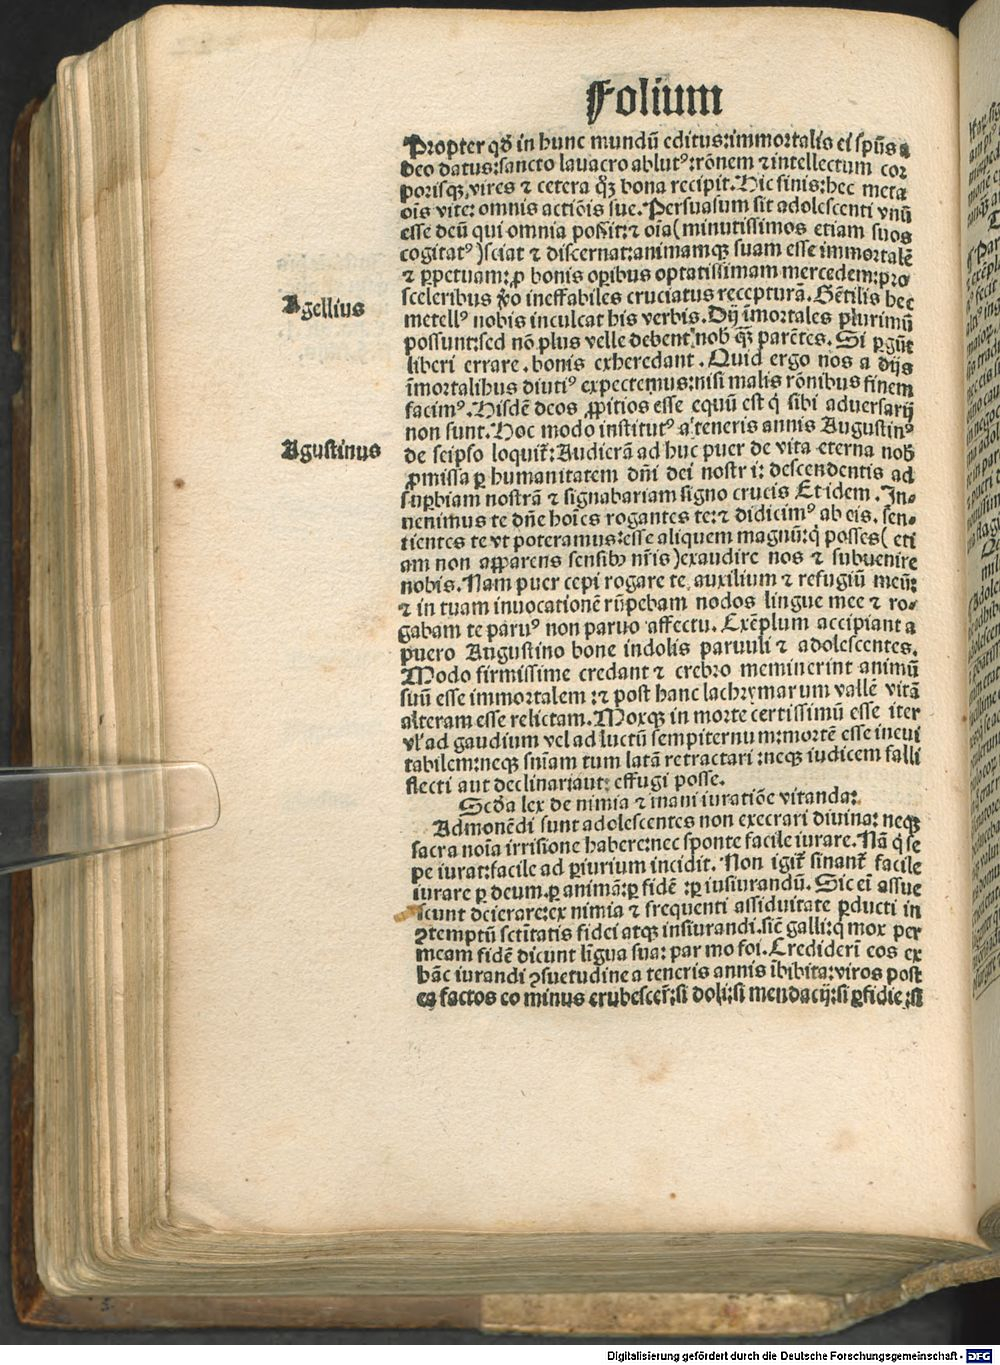 Folium
Propter qď in hunc mundū editus:immortalis ei spūs a
deo datus:sancto lauacro ablutꝰ:rōnem ⁊ intellectum cor
porisqꝫ vires ⁊ cetera q̄ꝫ bona recipit. Hic finis:hec meta
oīs vite: omnis actiōis sue. Persuasum sit adolescenti vnū
esse deū qui omnia possit:⁊ oīa( minutissimos etiam suos
cogitatꝰ )sciat ⁊ discernat:animamqꝫ suam esse immortalē
⁊ ꝑpetuam:ꝓ bonis oꝑibus optatissimam mercedem:pro
Agellius
sceleribus ꝟo ineffabiles cruciatus recepturā. Gētilis hec
metellꝰ nobis inculcat his verbis. Dij īmortales plurimū
possunt:sed nō plus velle debent nob̄ q̄ꝫ parētes. Si ꝑgūt
liberi errare. bonis exheredant. Quid ergo nos a dijs
īmortalibus diutiꝰ expectemus:nisi malis rōnibus finem
facimꝰ. Hisdē deos ꝓpitios esse equū est q̇ sibi aduersarij
non sunt. Hoc modo institutꝰ a teneris annis Augustinꝰ
Agustinus
de seipso loquit̄: Audierā ad huc puer de vita eterna nob̄
ꝓmissa ꝑ humanitatem dn̄i dei nostri: descendentis ad
suꝑbiam nostrā ⁊ signabar iam signo crucis Et idem. In-
uenimus te dn̄e hoīes rogantes te:⁊ didicimꝰ ab eis. sen-
tientes te vt poteramus:esse aliquem magnū:q̇ posses( eti
am non apꝑarens sensibꝫ nr̄is )exaudire nos ⁊ subuenire
nobis. Nam puer cepi rogare te auxilium ⁊ refugiū meū:
⁊ in tuam inuocationē rūpebam nodos lingue mee ⁊ ro-
gabam te paruꝰ non paruo affectu. Exēplum accipiant a
puero Augustino bone indolis paruuli ⁊ adolescentes.
Modo firmissime credant ⁊ crebro meminerint animū
suū esse immortalem :⁊ post hanc lachrymarum vallē vitā
alteram esse relictam. Moxqꝫ in morte certissimū esse iter
vl' ad gaudium vel ad luctū sempiternum:mortē esse ineui
tabilem:neqꝫ sn̄iam tum latā retractari :neqꝫ iudicem falli
flecti aut declinari aut effugi posse.
Scďa lex de nimia ⁊ inani iuratiōe vitanda:
Admonēdi sunt adolescentes non execrari diuina: neqꝫ
sacra noīa irrisione habere:nec sponte facile iurare. Nā q̇ se
pe iurat:facile ad ꝑiurium incidit. Non igit̄ sinant̄ facile
iurare ꝑ deum.ꝑ animā:ꝑ fidē :ꝑ iusiurandū. Sic ei̅ assue
scunt deierare:ex nimia ⁊ frequenti assiduitate ꝑducti in
ꝯtemptū sctītatis fidei atqꝫ insiurandi.sic̄ galli:q̇ mox per
meam fidē dicunt līgua sua: par mo foi. Crediderī eos ex
hāc iurandi ꝯsuetudine a teneris annis ībibita:viros post
ea factos eo minus erubescer̄:si doli:si mendacij:si ꝑfidie:si
Digitalisierung gefördert durch die Deutsche Forschungsgemeinschaft - DFG